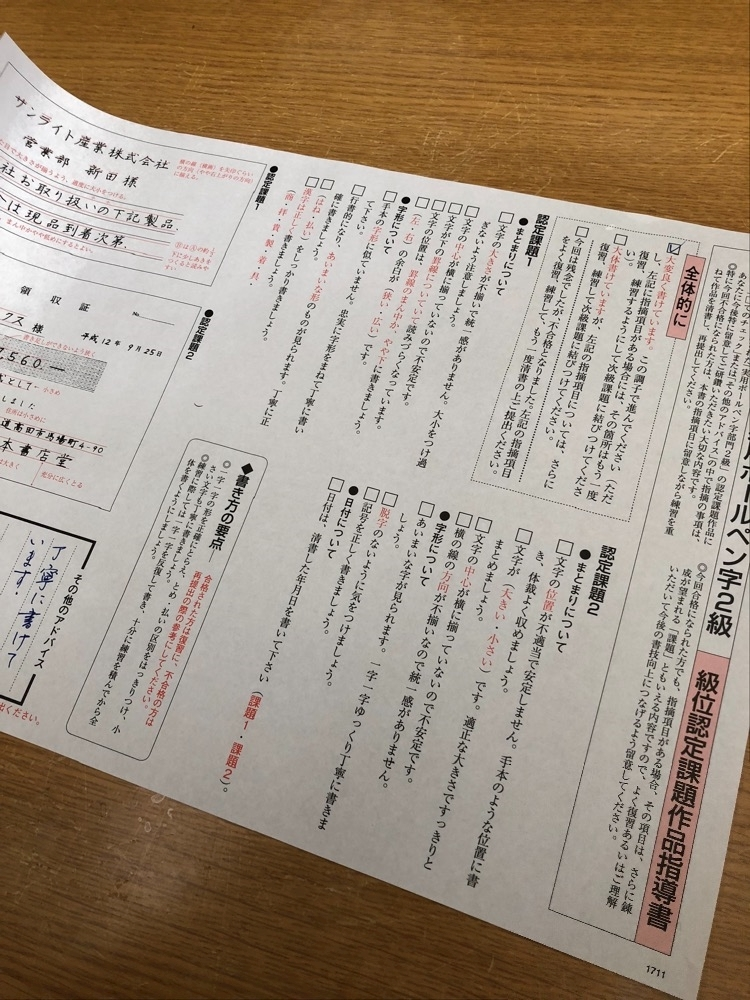 用ボールペン字2級
級位認定課題作品指導書
◎今回合格になられた方でも、指摘項目がある場合、その項目は、さらに錬
成が望まれる「課題」ともいえる内容ですので、よく復習あるいはご理解
いただいて今後の書技向上につなげるよう留意してください。
全体的に
大変良く書けています。この調子で進んでください(ただ
し、左記に指摘項目がある場合には、その箇所はもう一度
復習、練習するようにして次級課題に結びつけてくださ
い)。
大体書けていますが、左記の指摘項目については、さらに
復習、練習して次級課題に結びつけてください。
今回は残念でしたが、不合格となりました。左記の指摘項目
をよく復習、練習して、もう一度清書の上ご提出ください。
認定課題1
●まとまりについて
文字の大きさが不揃いで統一感がありません。大小をつけ過
ぎないよう注意しましょう。
文字の中心が横に揃っていないので不安定です。
文字の下の罫線についていて読みづらくなっています。
文字の位置は、罫線のまん中か、やや下に書きましょう。
(左・右)の余白が(狭い・広い)です。
●字形について
手本の字形に似ていません。忠実に字形をまねて丁寧に書い
て下さい。
行書的になり、あいまいな形のものが見られます。丁寧に正
確に書きましょう。
「はね・払い」をしっかり書きましょう。
漢字は正しく書きましょう。
(商・拝・貴・製・着・具・
)
認定課題2
●まとまりについて
文字の位置が不適当で安定しません。手本のような位置に書
き、体裁よく収めましょう。
文字が(大きい・小さい)です。適正な大きさですっきりと
まとめましょう。
文字の中心が横に揃っていないので不安定です。
横の線の方向が不揃いなので統一感がありません。
●字形について
あいまいな字が見られます。一字一字ゆっくり丁寧に書きま
しょう。
脱字のないように気をつけましょう。
記号を正しく書きましょう。
●日付について
日付は、清書した年月日を書いて下さい(課題1・課題2)。
◆書き方の要点
合格された方は復習に、不合格の方は
再提出の際の参考にしてください。
●認定課題1
サンライト産業株式会社
営業部 新田様
社お取り扱いの下記製品
は現品到着次第、
●認定課題2
領収証
No.
クス様
平成12年9月25日
,560—
として— 小さめ
しました
住所は小さめに
道高田市馬場町4-90
本書店堂
その他のアドバイス
丁寧に書けて
います!
1711